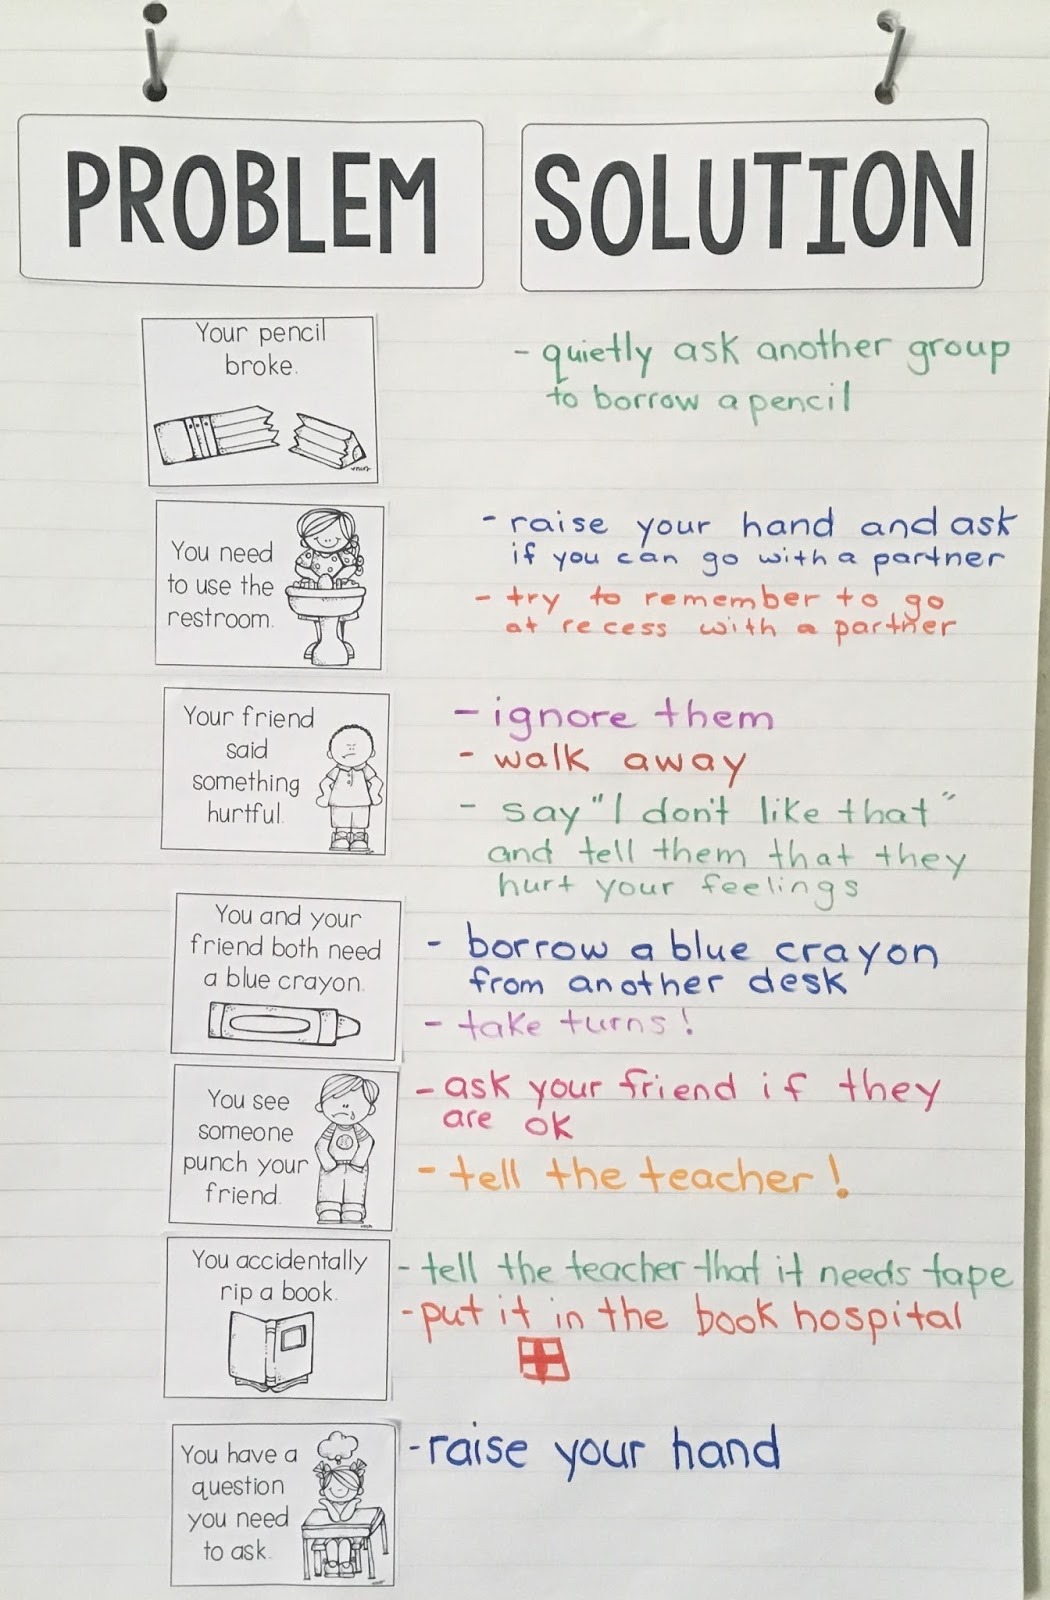 PROBLEM SOLUTION
Your pencil
broke.
- quietly ask another group
to borrow a pencil
You need
to use the
restroom.
- raise your hand and ask
if you can go with a partner
- try to remember to go
at recess with a partner
Your friend
said
something
hurtful.
- ignore them
- walk away
- say "I don't like that"
and tell them that they
hurt your feelings
You and your
friend both need
a blue crayon.
- borrow a blue crayon
from another desk
- take turns!
You see
someone
punch your
friend.
- ask your friend if they
are ok
- tell the teacher!
You accidentally
rip a book.
- tell the teacher that it needs tape
- put it in the book hospital
You have a
question
you need
to ask.
- raise your hand